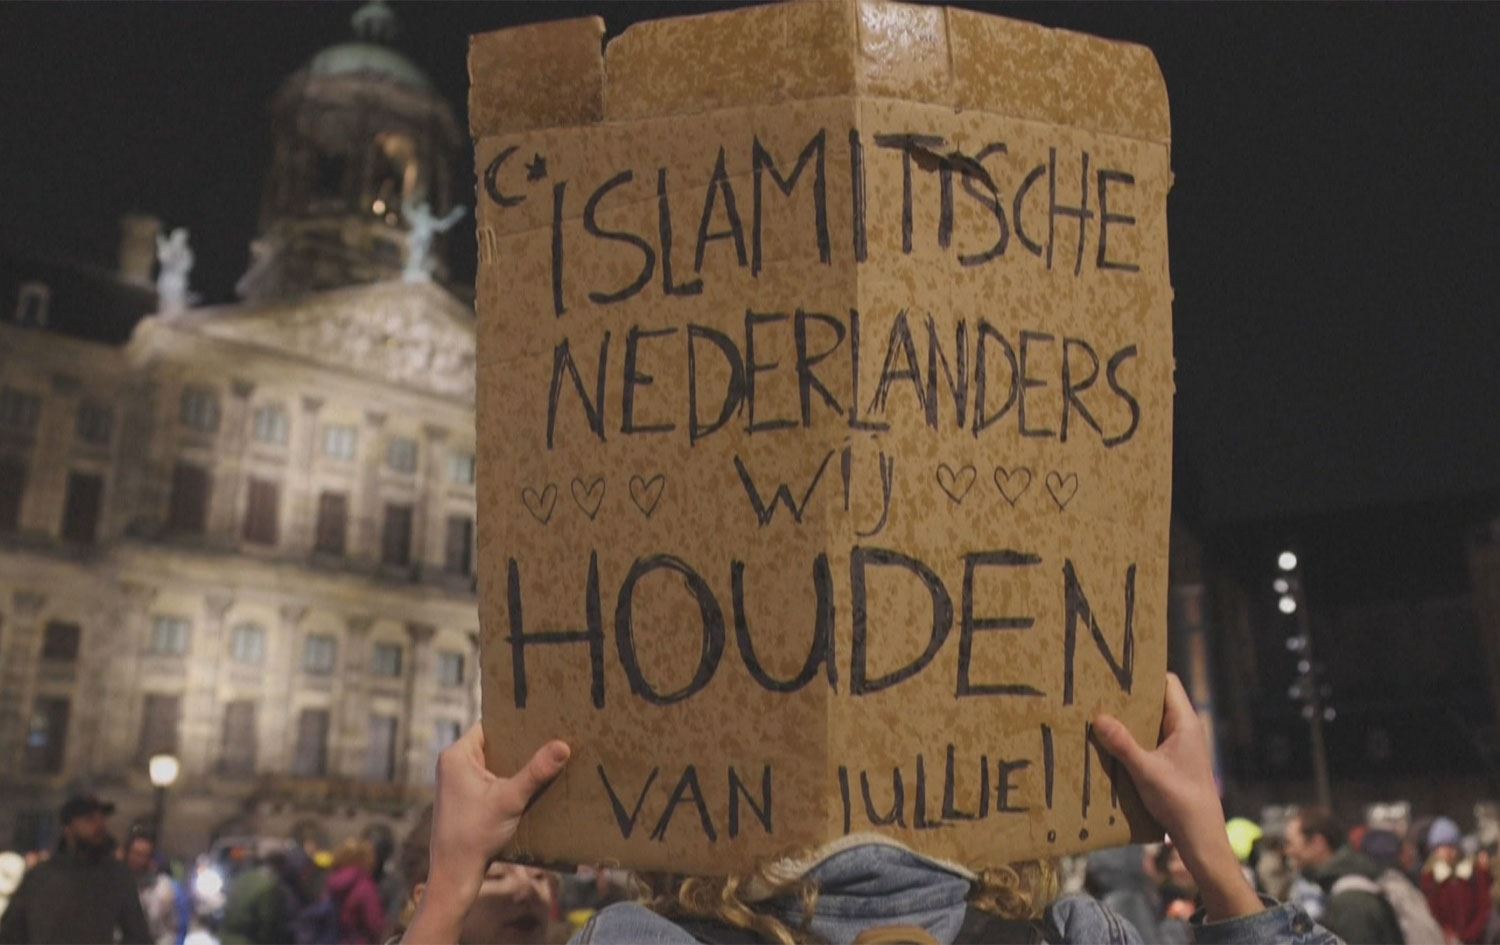 ISLAMITISCHE
NEDERLANDERS
WIJ
HOUDEN
VAN JULLIE!!!